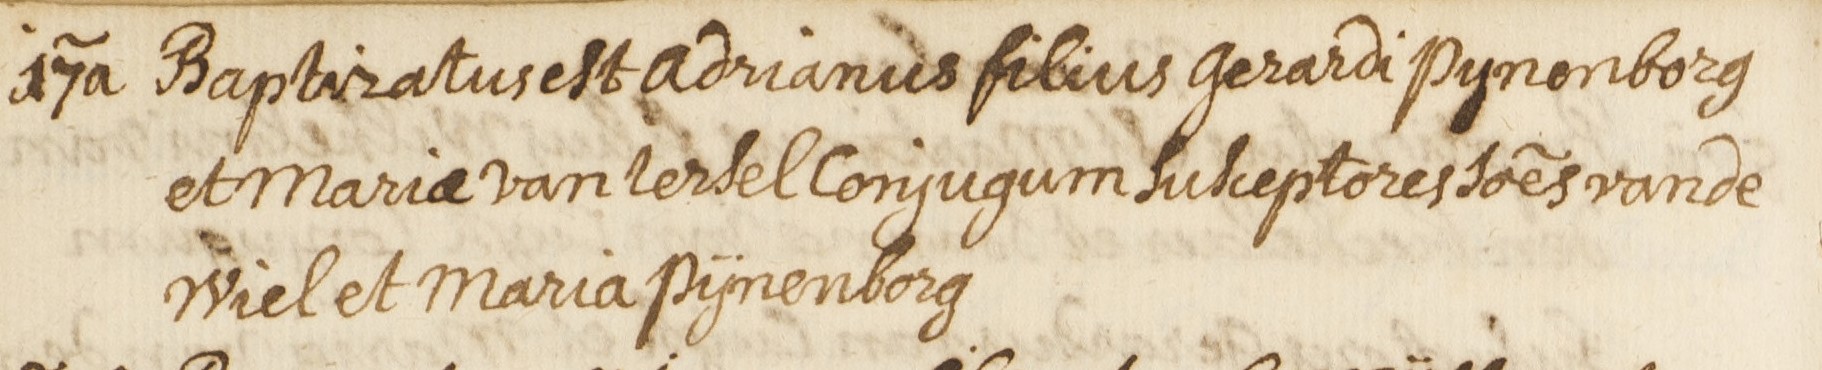 17a Baptizatus est Adrianus filius Gerardi Pynenborg
et Mariæ van Iersel Conjugum Susceptores Joes vande
Wiel et Maria Pijnenborg